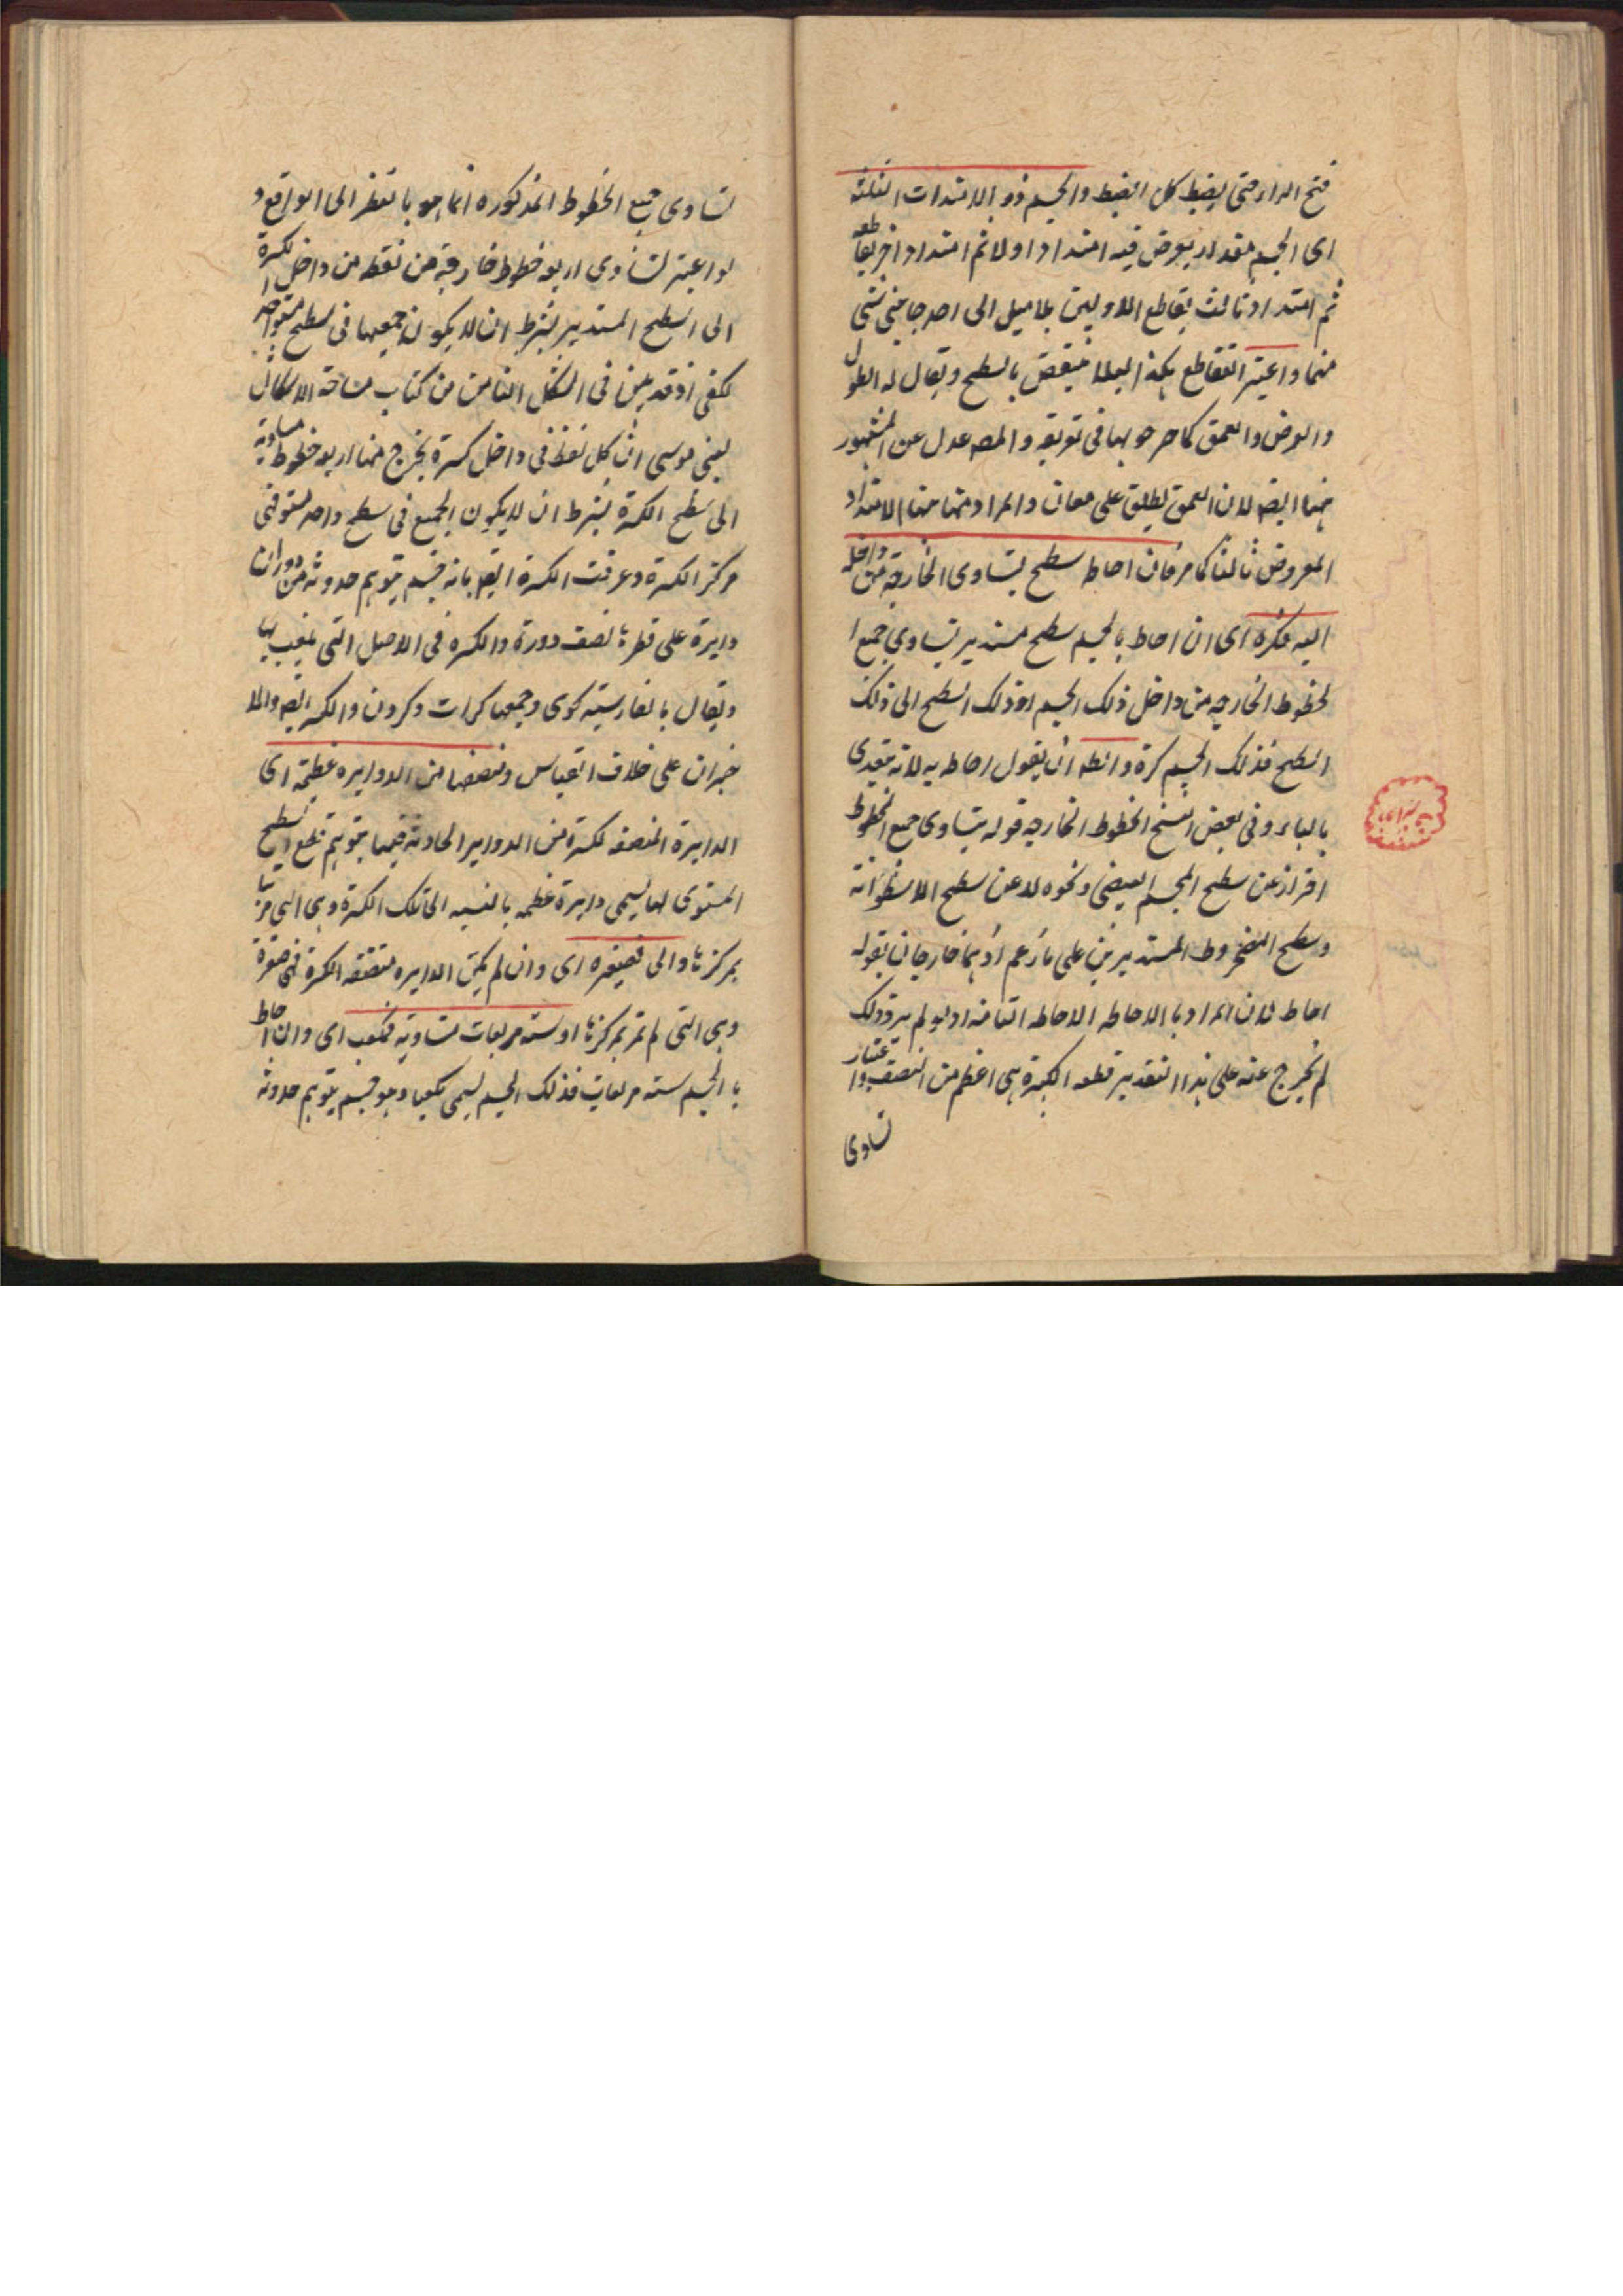 فتح الراء حتى يضبط كل الضبط والجسم ذو الامتدادات الثلثة
اى الجسم مقدار يعرض فيه امتداد اولا ثم امتداد اخر يقاطعه
ثم امتداد ثالث يقاطع الاولين بلا ميل الى احد جانبى شئ
منهما واعتبر التقاطع هكذا لئلا ينتقض بالسطح ويقال له الطول
والعرض والعمق كما صرحوا بها فى تعريفه والمص عدل عن المشهور
ههنا ايضا لان العمق يطلق على معان والمراد ههنا الامتداد
المعروض ثالثا كما مر فان احاط سطح يتساوى الخارجة من داخله
اليه فكرة اى ان احاط بالجسم سطح مستدير يتساوى جميع ا
لخطوط الخارجه من داخل ذلك الجسم او ذلك السطح الى ذلك
السطح فذلك الجسم كرة والظ ان يقول احاط به لانه يتعدى
بالباء وفى بعض النسخ الخطوط الخارجه قوله يتساوى جميع الخطوط
احتراز عن سطح الجسم البيضى ونحوه لا عن سطح الاسطوانة
وسطح المخروط المستديرين على ما زعم اذ هما خارجان بقوله
احاط لان المراد بالاحاطه الاحاطه التامه اذ لو لم يرد ذلك
لم يخرج عنه على هذا التقدير قطعه الكرة هى اعظم من النصف واعتبار
تساوى
تساوى جميع الخطوط المذكوره انما هو بالنظر الى الواقع و
لو اعتبر تساوى اربعه خطوط خارجة من نقطه من داخل الكرة
الى السطح المستدير بشرط ان لا يكون جميعها فى سطح مستو واحد
لكفى اذ قد بين فى الشكل الثامن من كتاب مساحة الاشكال
لبنى موسى ان كل نقطة فى داخل كرة يخرج منها اربعه خطوط مساوية
الى سطح الكرة بشرط ان لا يكون الجميع فى سطح واحد مستو فهى
مركز الكرة وعرفت الكرة ايضا بانه جسم يتوهم حدوثه من دوران
دايرة على قطرها نصف دورة والكره فى الاصل التى يلعب بها
ويقال بالفارسيه كوى وجمعها كرات وكرون والكره ايضا والا
خيران على خلاف القياس ومنصفها من الدوايره عظيمة اى
الدايرة المنصفه لكرة من الدواير الحادثة فيها بتوهم قطع السطح
المستوى لها يسمى دايرة عظمه بالنسبه الى تلك الكرة وهى التى مر بها
بمركزها والى فصغيره اى وان لم يكن الدايره منصفه الكرة فهى صغيرة
وهى التى لم تمر بمركزها او ستة مربعات متساويه فمكعب اى وان احاط
بالجسم سته مربعات فذلك الجسم يسمى مكعبا وهو جسم يتوهم حدوثه